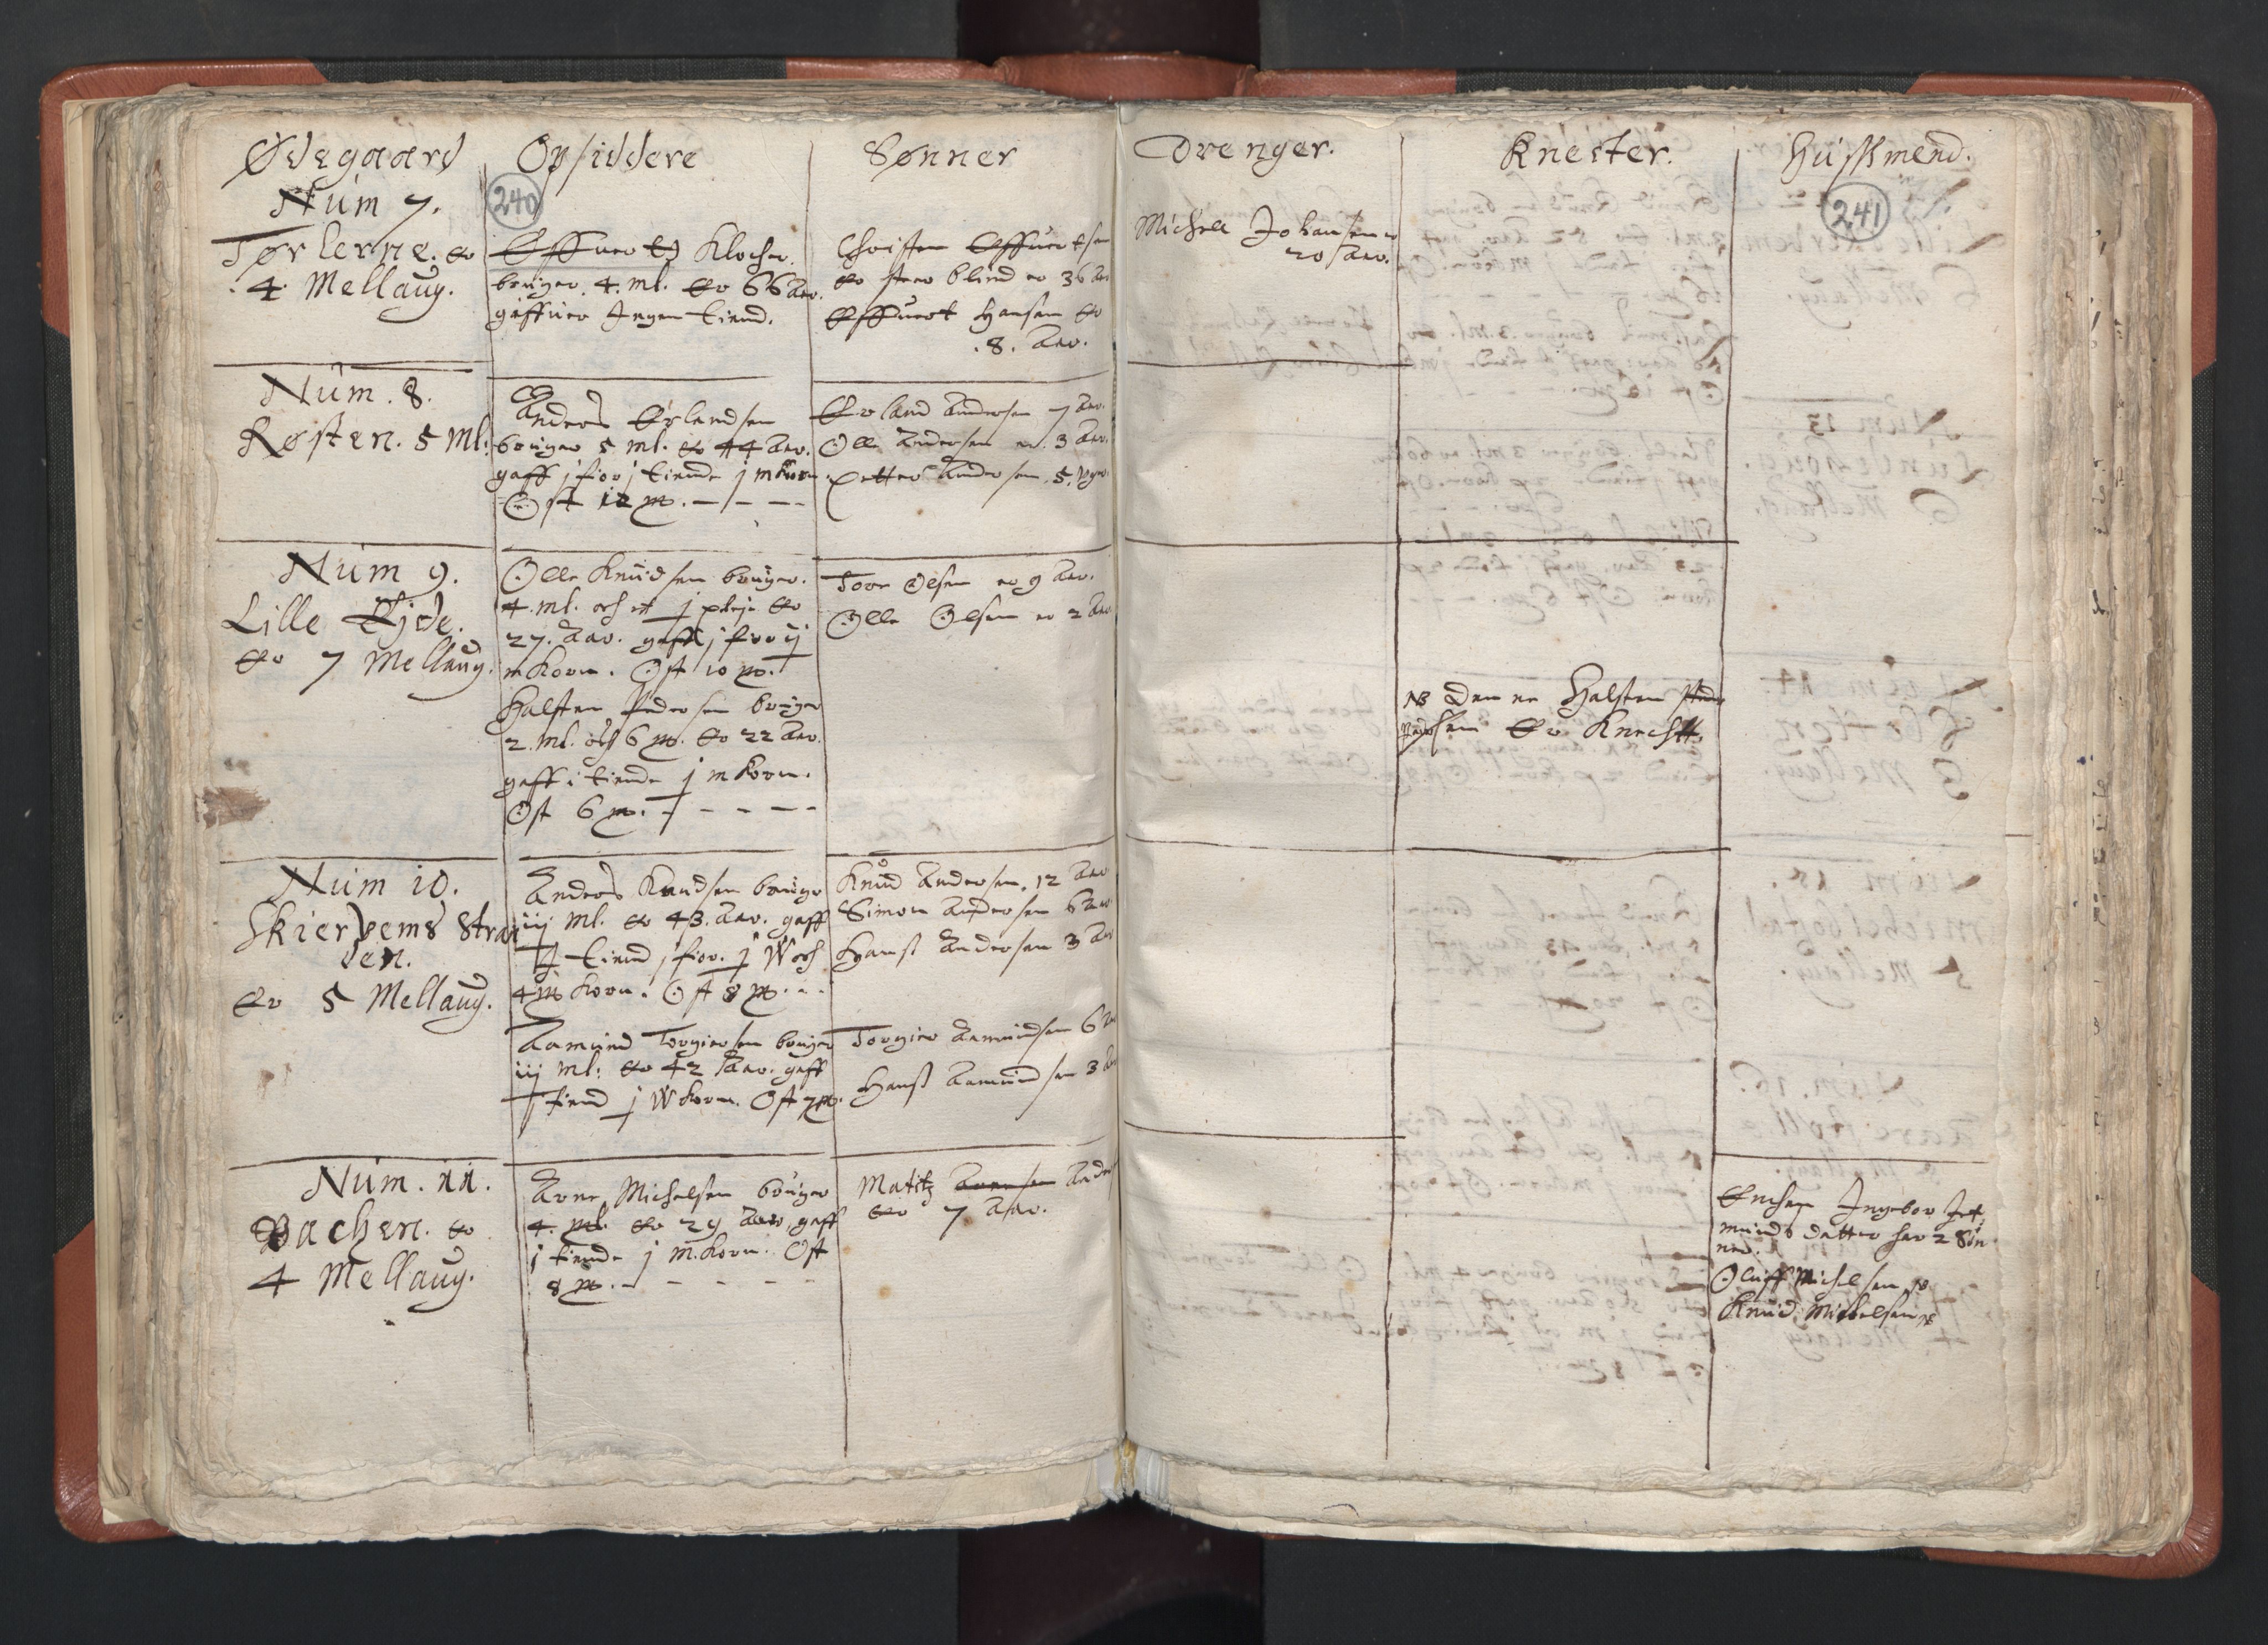 Ødegaard
Num 7.
Tørlerne. er
4. Mellaug.
Num. 8.
Røsten. 5 Ml:
Num 9.
Lille Eide.
er 7 Mellaug.
Num 10.
Skiervems Stran
den.
er 5 Mellaug.
Num. 11.
Bachen. er
4 Mellaug.
Opsiddere
240
Effuert Klocher.
bruger. 4. ml. er 66 Aar.
gaffuer Ingen tiend.
Anders Erlandsen
bruger 5 ml. er 44 Aar.
gaff j fior j tiende j m korn.
Ost 12 m.
Olle Knudsen bruger.
4. ml. och it j pleje er
27. Aar. gaff j fior ij
m korn. Ost 10 m.
Halsten Pedersen bruger
2. ml. och 6 m. er 22 Aar.
gaff i tiende j m korn.
Ost 6 m.
Anders Knudsen bruger
iij ml. er 43. Aar. gaff
j tiend j fior. j W och
4 m korn. Ost 8 m.
Aamund Torgiersen bruger
iij ml: er 42 Aar. gaff
j tiend j W korn. Ost 7 m.
Arne Michelsen bruger
4. ml. er 29 Aar. gaff
j tiende j m. korn. Ost
8 m.
Sønner
Christen Effuertsen
er steen blind er 36 Aar
Effuert Hansen er
.8. Aar.
Erland Andersen 7 Aar.
Olle Andersen er. 3 Aar.
Petter Andersen. 5. Uger
Tore Olsen er 9 Aar.
Olle Olsen er 2 Aar
Knud Andersen. 12 Aar
Simon Andersen 6 Aar
Hans Andersen 3 Aar
Torgier Aamundsen 6 Aar
Hans Aamundsen 3 Aar
Matz Arnesen
er 7 Aar.
Drenger.
Michell Johansen er
20 Aar.
Knecter.
NB Denne Halsten
Pedersen er Knecht.
Husmend.
241
Enchen Ingebor
munds datter har 2 Søn
ner.
Oluff Michelsen
Knud Michelsen